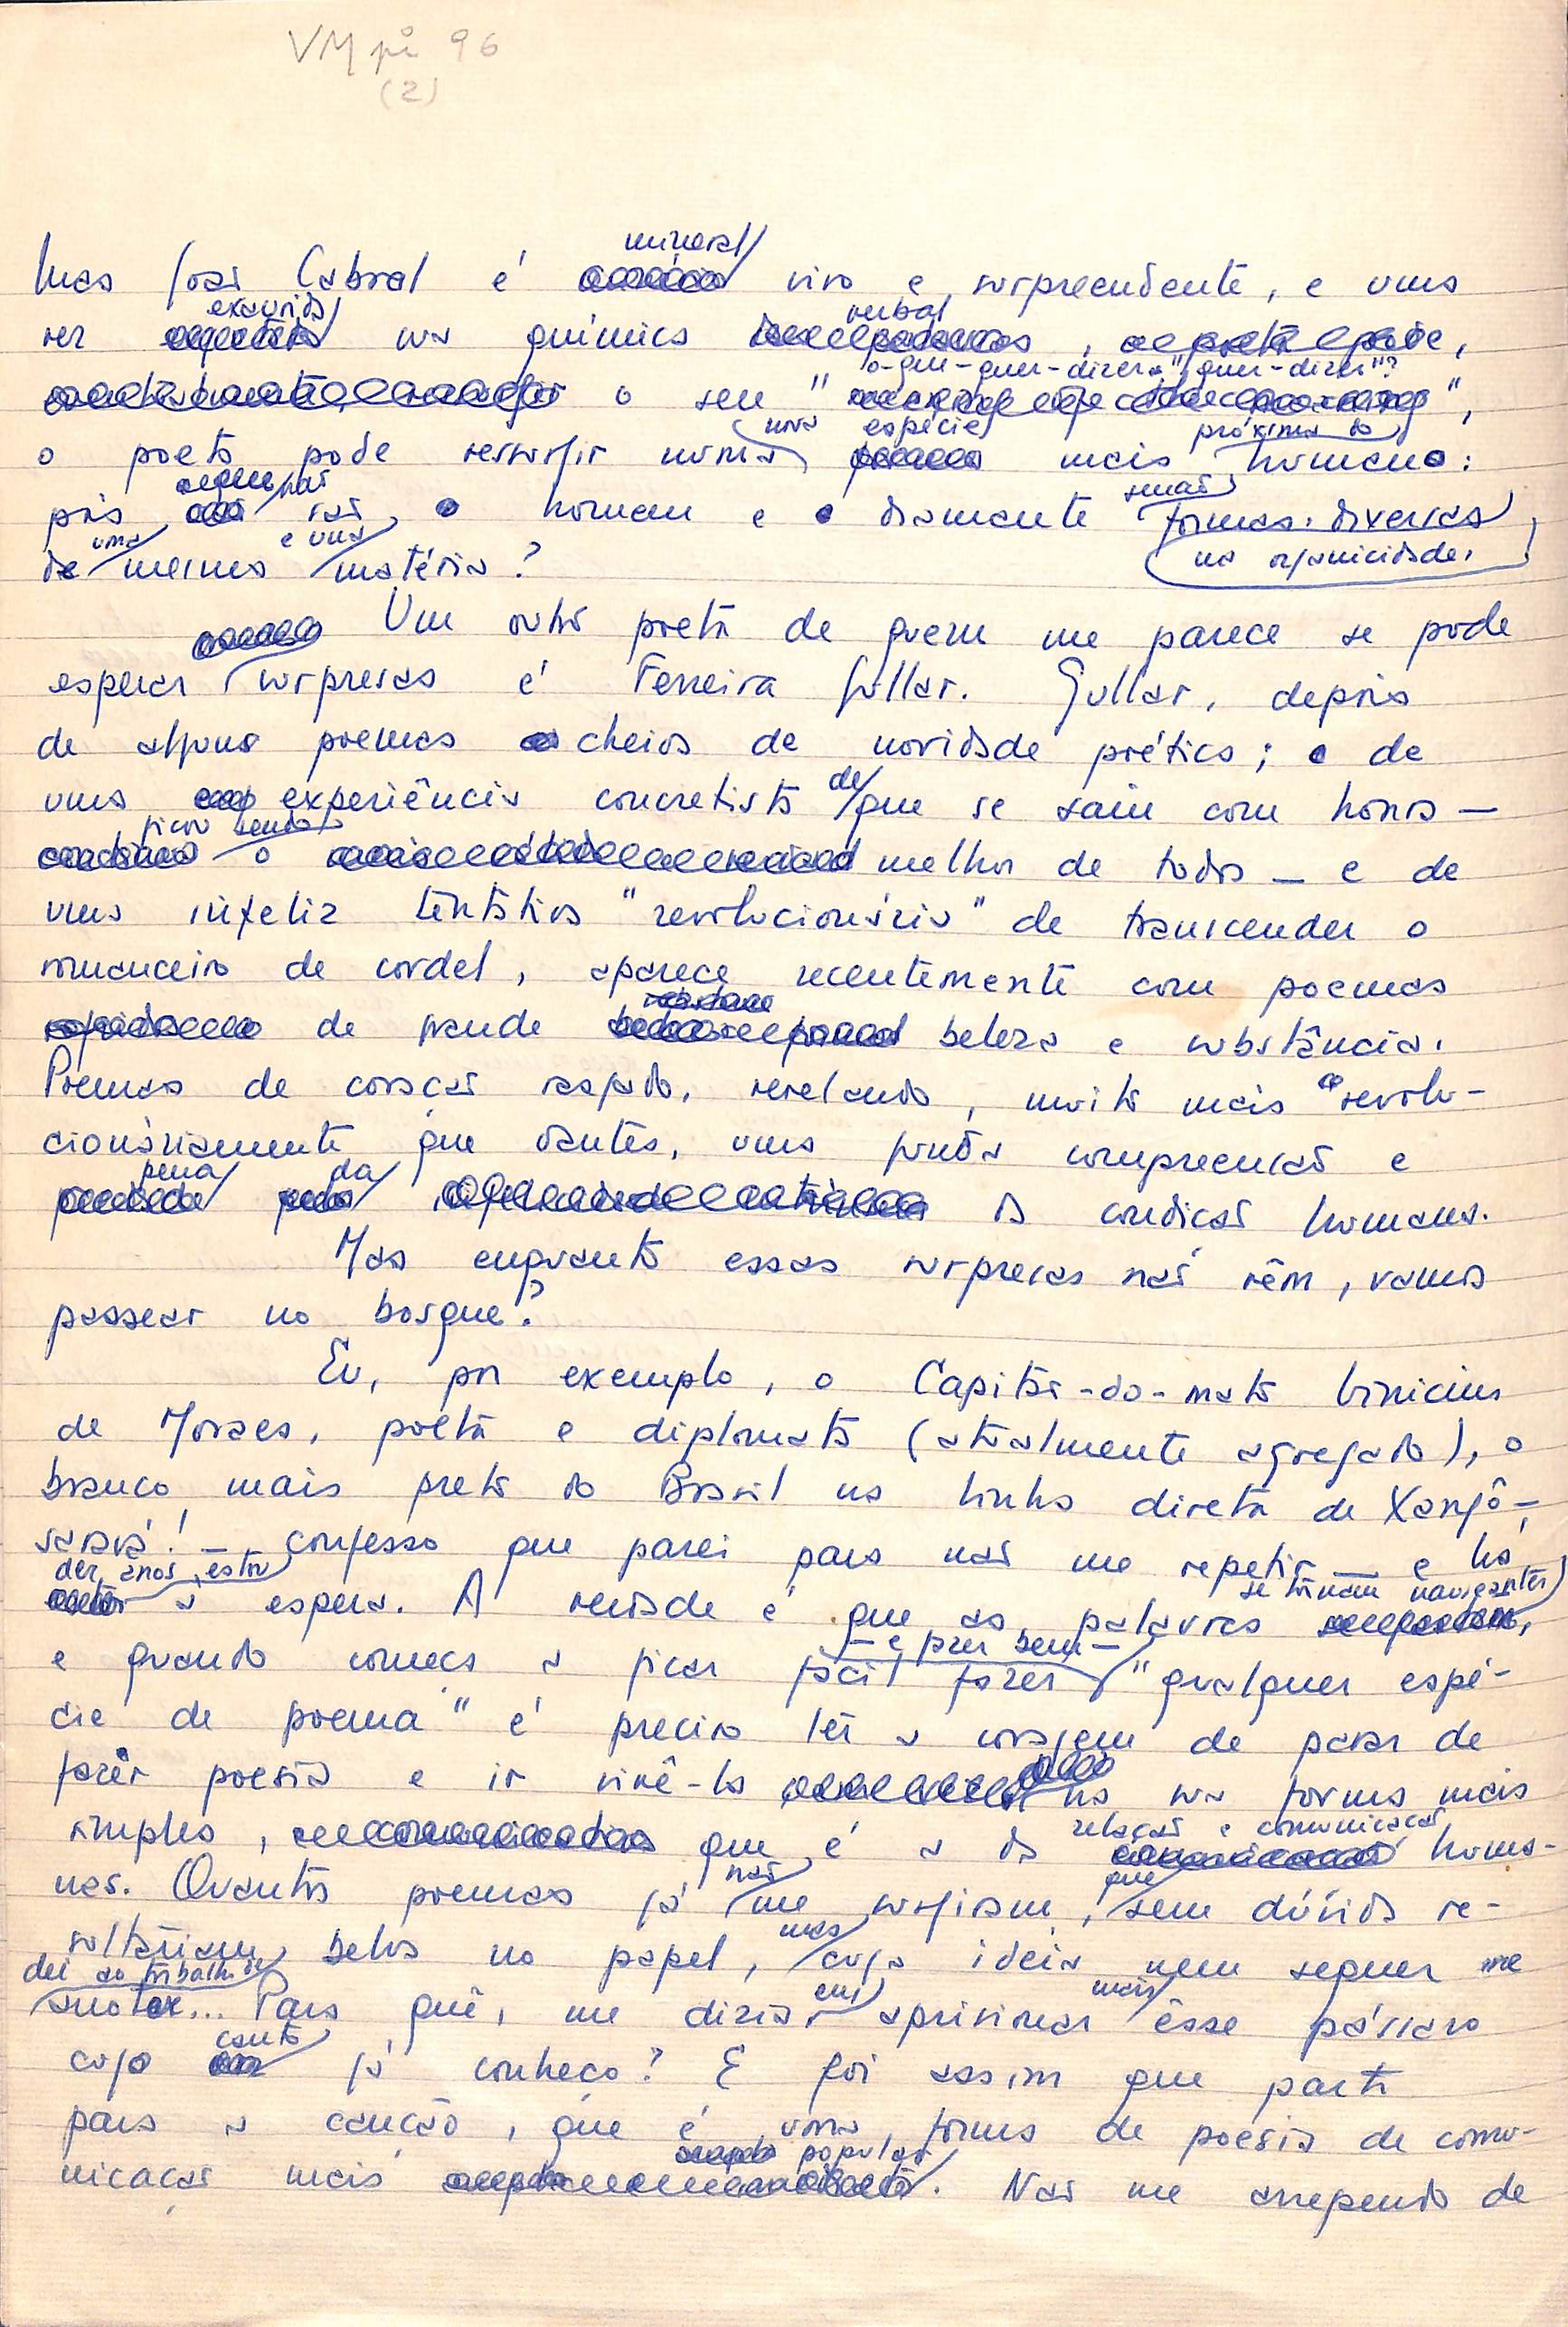 VM pi 96
(2)
Mas João Cabral é mineral vivo e surpreendente, e uma
vez exaurida sua química verbal,
o seu "o-que-quer-dizer-"quer-dizer"?",
o poeta pode ressurgir numa nova espécie mais próxima do humano:
pois são o homem e o diamante senão formas diversas
na organicidade,
de uma mesma e una matéria?
Um outro poeta de quem me parece se pode
esperar surpresas é Ferreira Gullar. Gullar, depois
de alguns poemas cheios de novidade poética; e de
uma experiência concretista de que se saiu com honra —
ficou sendo o melhor de todos — e de
uma infeliz tentativa "revolucionária" de transcender o
romanceiro de cordel, aparece recentemente com poemas
de grande beleza e substância.
Poemas de coração rasgado, revelando, muito mais revolu-
cionàriamente que dantes, uma funda compreensão e
pena da condição humana.
Mas enquanto essas surpresas não vêm, vamos
passear no bosque?
Eu, por exemplo, o Capitão-do-mato Vinicius
de Moraes, poeta e diplomata (atualmente agregado), o
branco mais preto do Brasil na linha direta de Xangô —
saravá! — confesso que parei para não me repetir — e há
dez anos estou à espera. A verdade é que as palavras se tornam navigantes,
e quando começa a ficar fácil fazer — e fazer bem — "qualquer espé-
cie de poema" é preciso ter a coragem de parar de
fazer poesia e ir vivê-la na sua forma mais
simples, que é a da relação e comunicação huma-
nas. Quantos poemas já não me surgiram, que sem dúvida re-
sultariam belos no papel, mas cuja ideia nem sequer me
dei ao trabalho de anotar... Para quê, me dizia eu, aprisionar mais êsse pássaro
cujo canto já conheço? E foi assim que parti
para a canção, que é uma forma de poesia de comu-
nicação mais popular. Não me arrependo de